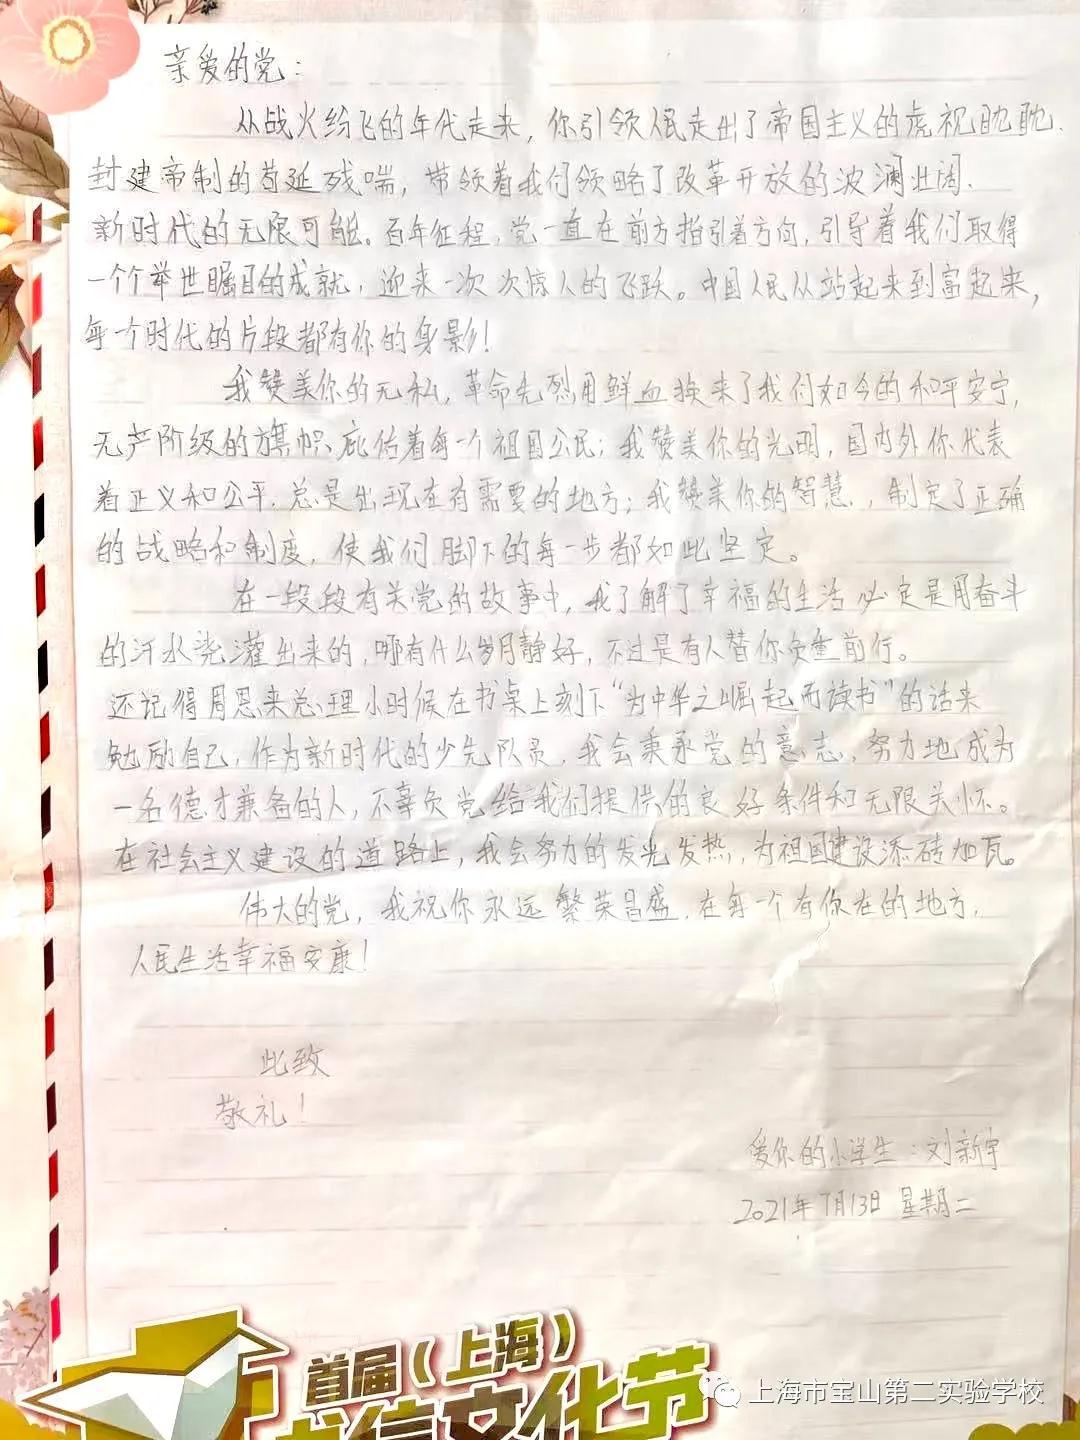 亲爱的党：
从战火纷飞的年代走来，你引领人民走出了帝国主义的虎视眈眈、
封建帝制的苟延残喘，带领着我们领略了改革开放的波澜壮阔、
新时代的无限可能。百年征程，党一直在前方指引着方向，引导着我们取得
一个个举世瞩目的成就，迎来一次次惊人的飞跃。中国人民从站起来到富起来，
每一个时代的片段都有你的身影！
我赞美你的无私，革命先烈用鲜血换来了我们如今的和平安宁，
无产阶级的旗帜庇佑着每一个祖国公民；我赞美你的光明，国内外你代表
着正义和公平，总是出现在有需要的地方；我赞美你的智慧，制定了正确
的战略和制度，使我们脚下的每一步都如此坚定。
在一段段有关党的故事中，我了解了幸福的生活必定是用奋斗
的汗水浇灌出来的，哪有什么岁月静好，不过是有人替你负重前行。
还记得周恩来总理小时候在书桌上刻下“为中华之崛起而读书”的话来
勉励自己，作为新时代的少先队员，我会秉承党的意志，努力地成为
一名德才兼备的人，不辜负党给我们提供的良好条件和无限关怀。
在社会主义建设的道路上，我会努力的发光发热，为祖国建设添砖加瓦。
伟大的党，我祝你永远繁荣昌盛，在每一个有你在的地方，
人民生活幸福安康！
此致
敬礼！
爱你的小学生：刘新宇
2021年7月13日 星期二
首届（上海）
书信文化节
上海市宝山第二实验学校